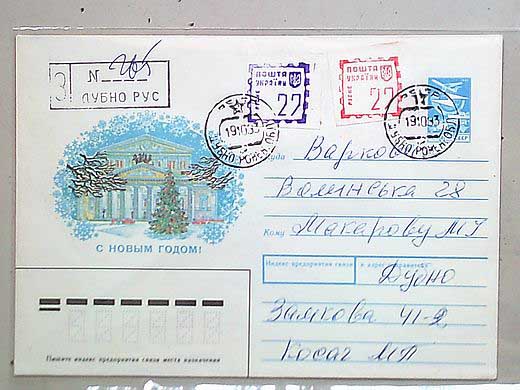 З
№ 265
ДУБНО РУС
ПОШТА
УКРАЇНИ
РІВНЕ
22
ПОШТА
УКРАЇНИ
РІВНЕ
22
191093
191093
Куда Варкови
Волинська 28
Кому Макарову М І
С НОВЫМ ГОДОМ!
Индекс предприятия связи и адрес отправителя
Дубно
Замкова 41-2
Косач М П
Пишите индекс предприятия связи места назначения